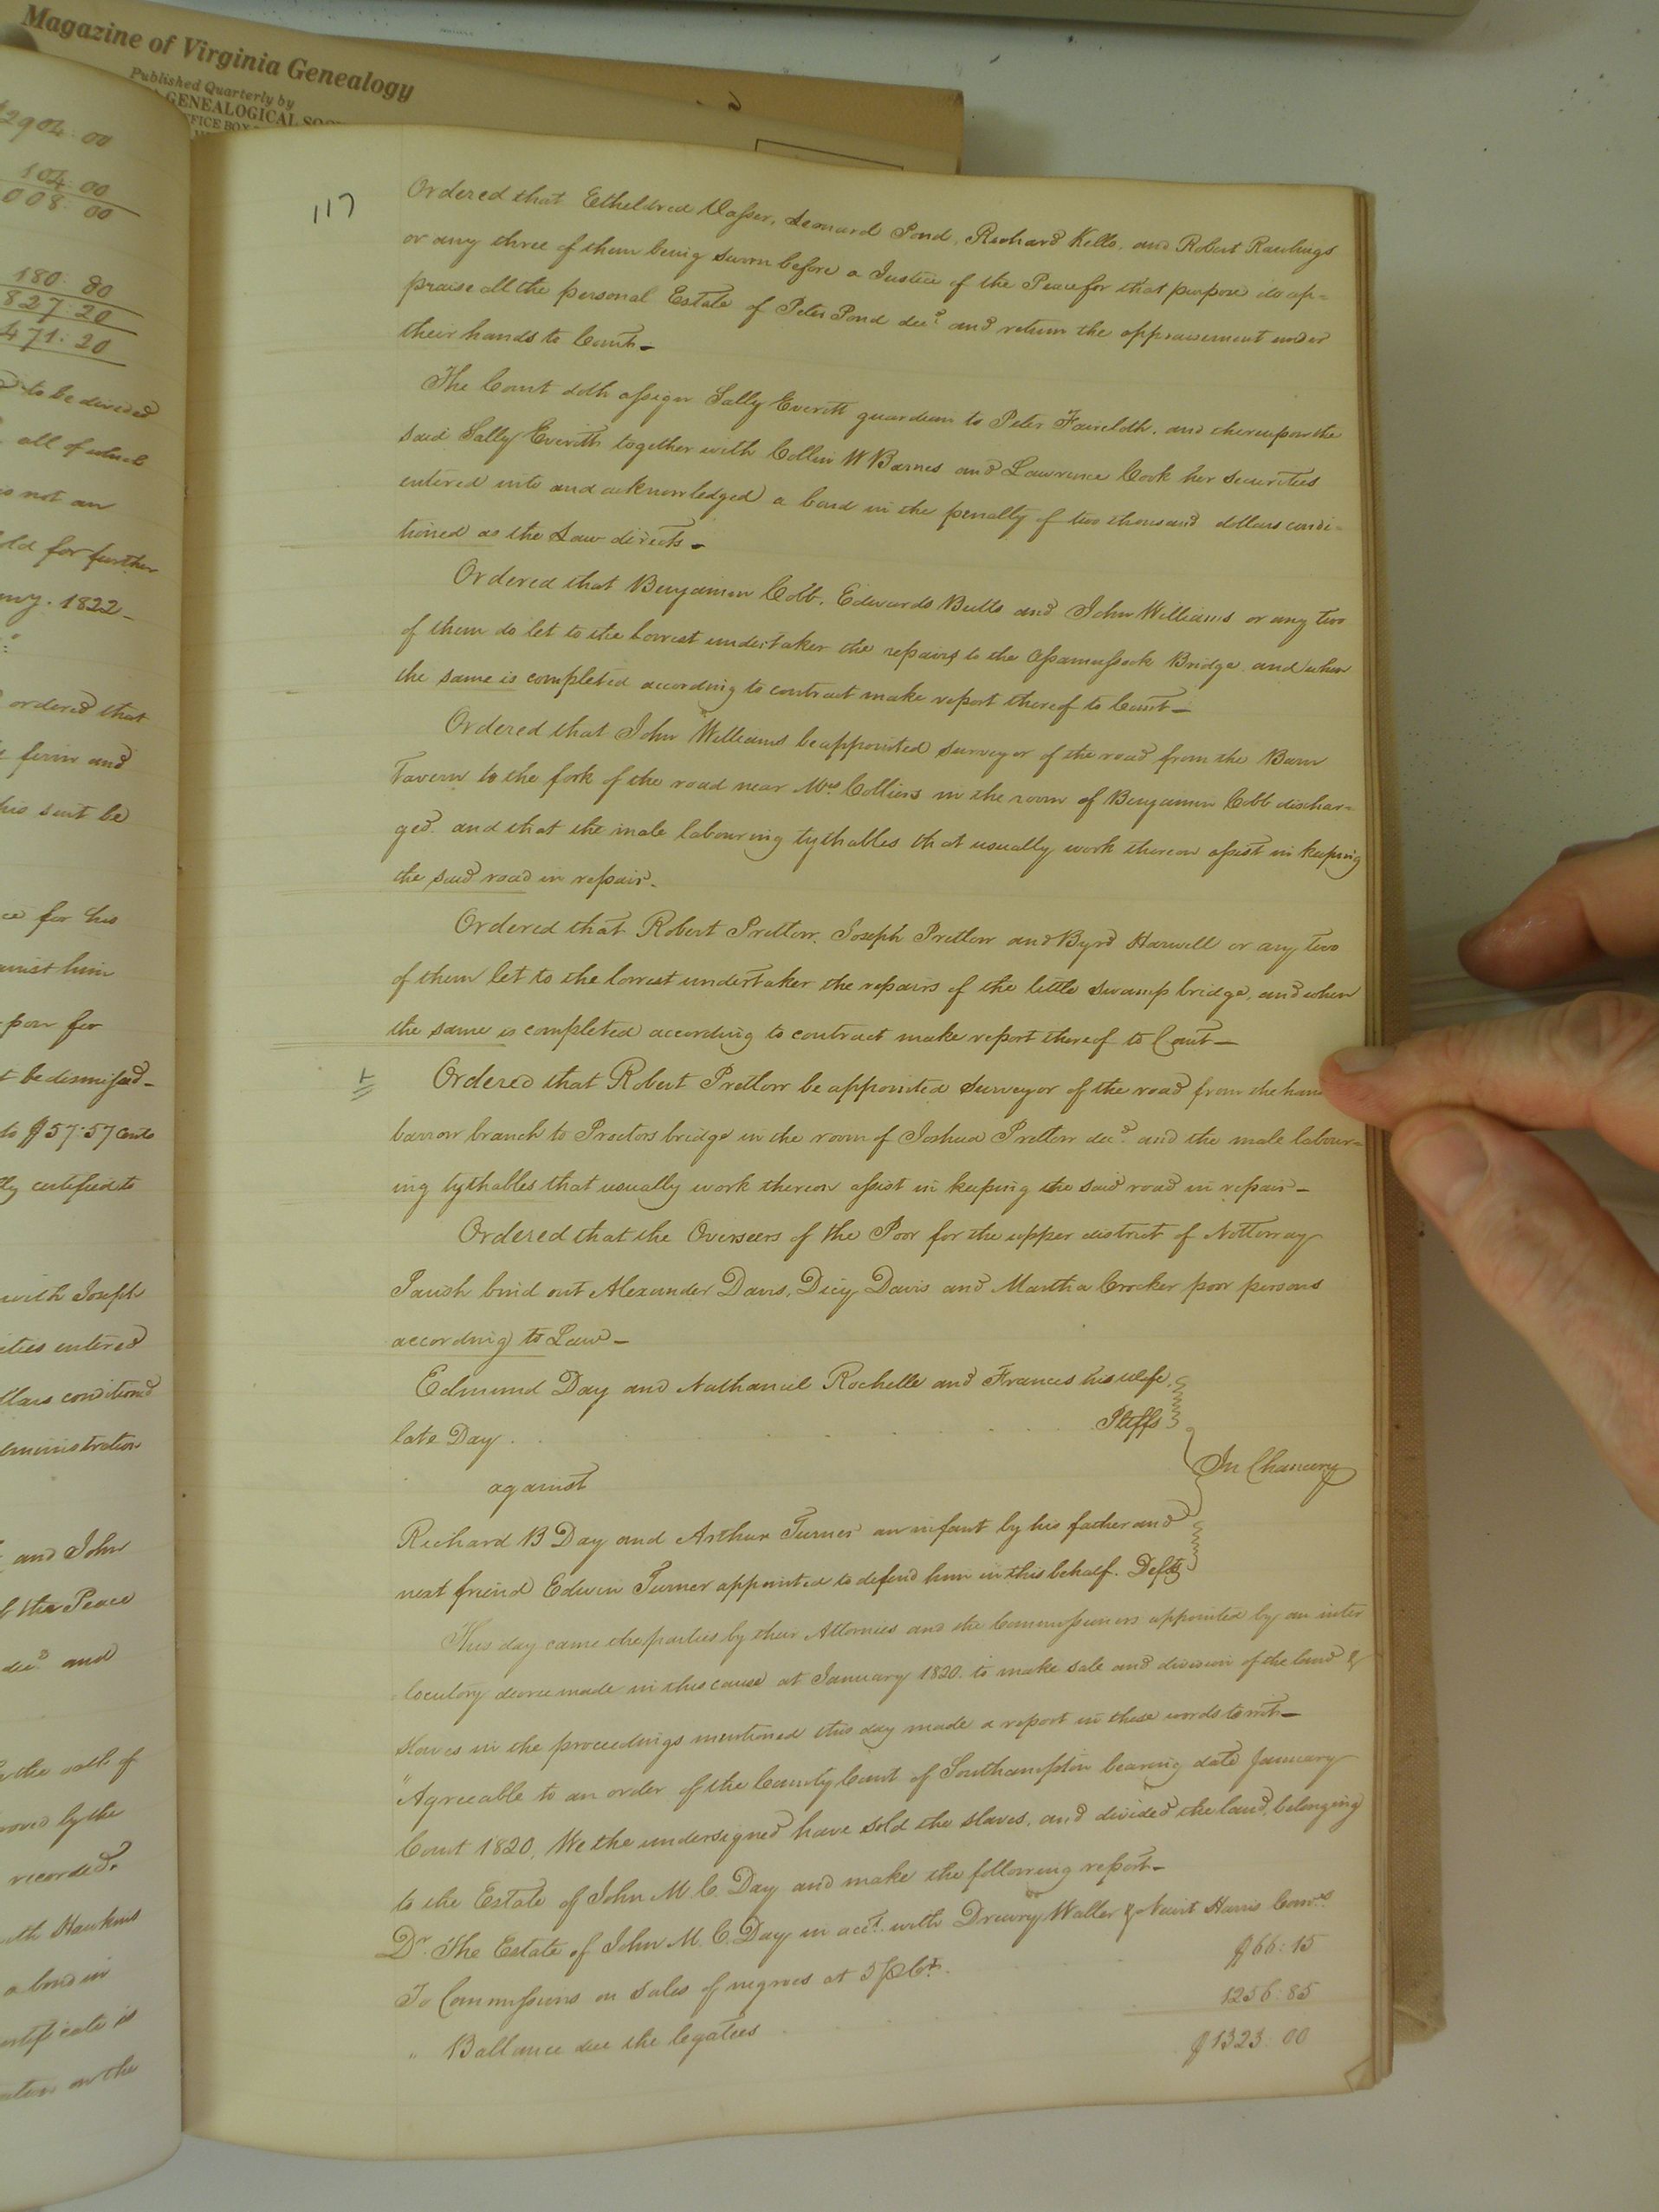 Magazine of Virginia Genealogy
Published Quarterly by
GENEALOGICAL
OFFICE BOX
2904:00
104:00
008:00
180:80
827:20
471:20
to be divided
all of which
is not an
old for further
1822_
ordered that
ferin and
his suit be
ce for his
against him
pon for
t be dismissed_
to $57:57 Cents
tly certified to
with Joseph
ities entered
llars conditioned
dministration
and John
f the Peace
decd and
the oath of
roved by the
recorded.
ith Hawkins
a bond in
certificate is
ration on the
117
Ordered that Etheldred Vasser, Leonard Pond, Richard Kello, and Robert Rawlings
or any three of them being sworn before a Justice of the Peace for that purpose do ap=
praise all the personal Estate of Peter Pond decd. and return the appraisement under
their hands to Court_
The Court doth assign Sally Everitt guardian to Peter Faircloth, and thereupon the
said Sally Everitt together with Collin W Barnes and Lawrence Cook her securities
entered into and acknowledged a bond in the penalty of two thousand dollars condi=
tioned as the Law directs_
Ordered that Benjamin Cobb, Edwards Butts and John Williams or any two
of them do let to the lowest undertaker the repairs to the Assamussock Bridge and when
the same is completed according to contract make report thereof to Court_
Ordered that John Williams be appointed surveyor of the road from the Barn
Tavern to the fork of the road near Mrs Colliers in the room of Benjamin Cobb dischar=
ged. and that the male labouring tythables that usually work thereon assist in keeping
the said road in repair_
Ordered that Robert Pretlow, Joseph Pretlow and Byrd Harwell or any two
of them let to the lowest undertaker the repairs of the little swamp bridge, and when
the same is completed according to contract make report thereof to Court_
Ordered that Robert Pretlow be appointed surveyor of the road from the han
barrow branch to Proctors bridge in the room of Joshua Pretlow decd. and the male labour=
ing tythables that usually work thereon assist in keeping the said road in repair_
Ordered that the Overseers of the Poor for the upper district of Nottoway
Parish bind out Alexander Davis, Dicy Davis and Martha Crocker poor persons
according to Law_
Edmund Day and Nathaniel Rochelle and Frances his wife,
late Day . . . . . . Pltffs
In Chancery
against
Richard B Day and Arthur Turner an infant by his father and
next friend Edwin Turner appointed to defend him in this behalf. Defts
This day came the parties by their Attornies and the Commissioners appointed by an inter
locutory decree made in this cause at January 1820. to make sale and division of the land &
slaves in the proceedings mentioned this day made a report in these words to wit_
"Agreeable to an order of the County Court of Southampton bearing date January
Court 1820, We the undersigned have sold the slaves, and divided the land, belonging
to the Estate of John M. C. Day and make the following report_
Dr. The Estate of John M. C. Day in acct. with Drewry Waller & Newit Harris Comrs.
To Commissions on sales of negroes at 5 p Ct. . . $66:15
" Ballance due the legatees . . 1256:85
$1323:00